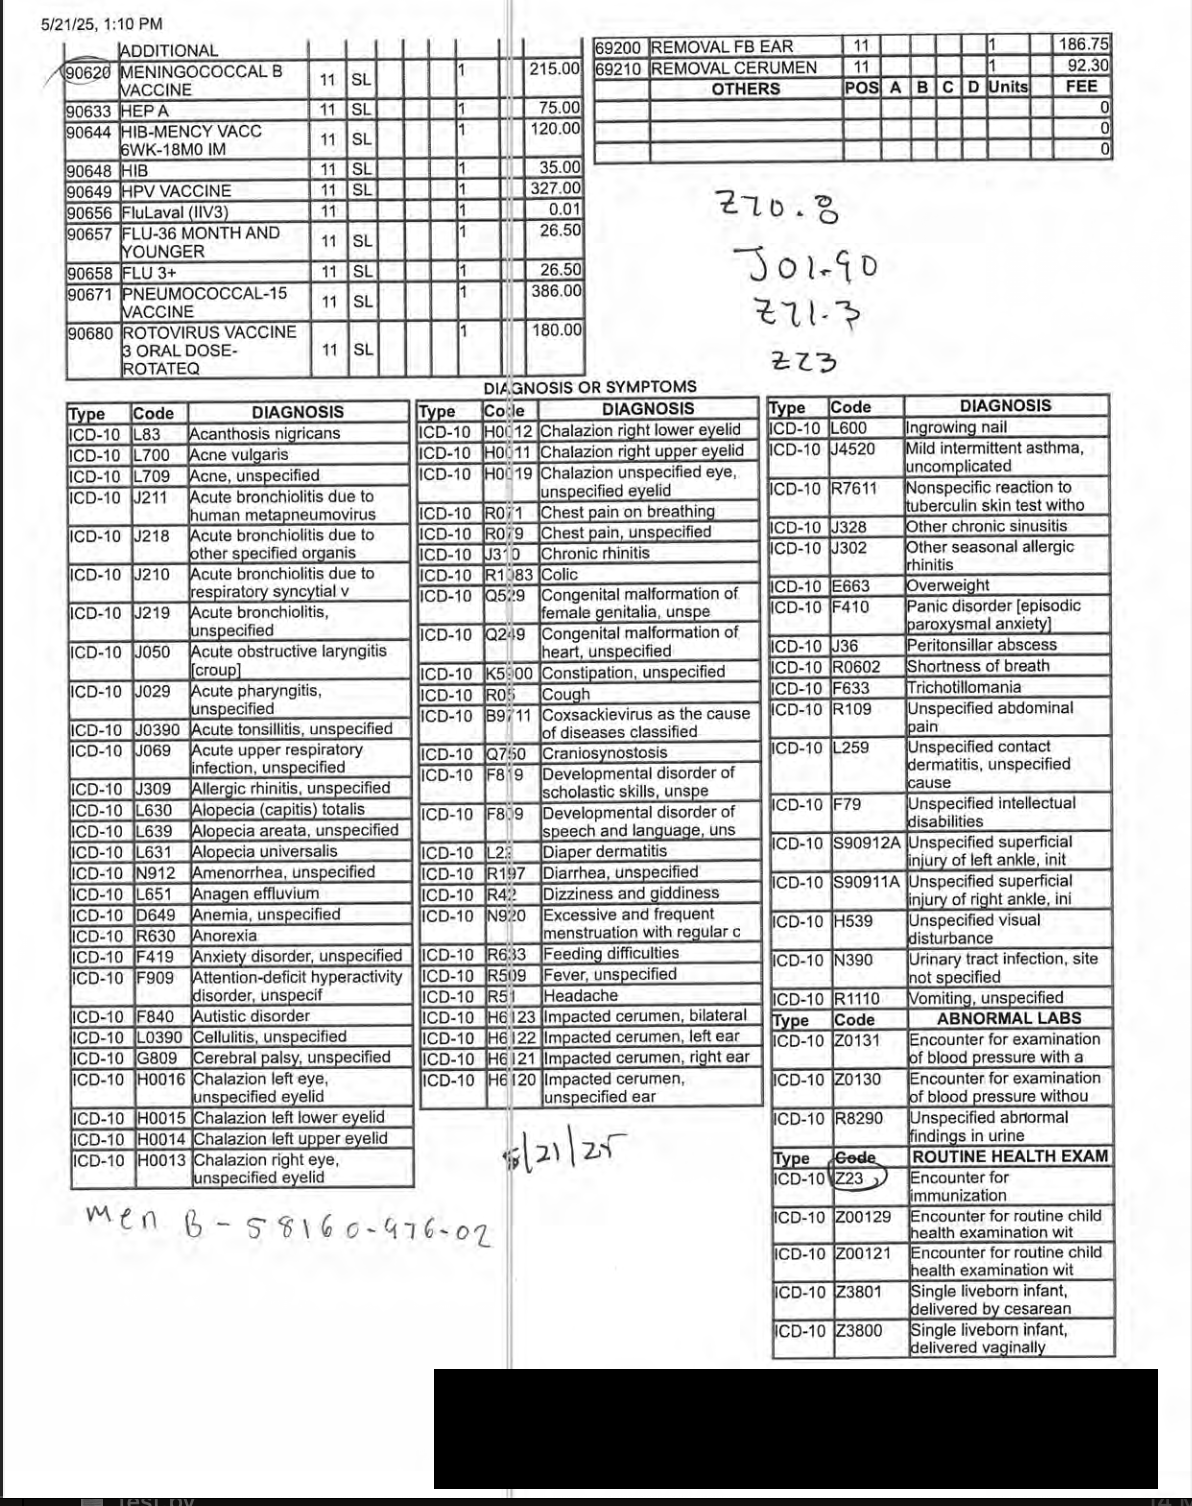 5/21/25, 1:10 PM
ADDITIONAL
90620 MENINGOCOCCAL B VACCINE 11 SL 1 215.00
90633 HEP A 11 SL 1 75.00
90644 HIB-MENCY VACC 6WK-18M0 IM 11 SL 1 120.00
90648 HIB 11 SL 1 35.00
90649 HPV VACCINE 11 SL 1 327.00
90656 FluLaval (IIV3) 11 1 0.01
90657 FLU-36 MONTH AND YOUNGER 11 SL 1 26.50
90658 FLU 3+ 11 SL 1 26.50
90671 PNEUMOCOCCAL-15 VACCINE 11 SL 1 386.00
90680 ROTOVIRUS VACCINE 3 ORAL DOSE-ROTATEQ 11 SL 1 180.00
69200 REMOVAL FB EAR 11 1 186.75
69210 REMOVAL CERUMEN 11 1 92.30
OTHERS POS A B C D Units FEE
0
0
0
Z70.8
J01.90
Z71.3
Z23
DIAGNOSIS OR SYMPTOMS
Type Code DIAGNOSIS
ICD-10 L83 Acanthosis nigricans
ICD-10 L700 Acne vulgaris
ICD-10 L709 Acne, unspecified
ICD-10 J211 Acute bronchiolitis due to human metapneumovirus
ICD-10 J218 Acute bronchiolitis due to other specified organis
ICD-10 J210 Acute bronchiolitis due to respiratory syncytial v
ICD-10 J219 Acute bronchiolitis, unspecified
ICD-10 J050 Acute obstructive laryngitis [croup]
ICD-10 J029 Acute pharyngitis, unspecified
ICD-10 J0390 Acute tonsillitis, unspecified
ICD-10 J069 Acute upper respiratory infection, unspecified
ICD-10 J309 Allergic rhinitis, unspecified
ICD-10 L630 Alopecia (capitis) totalis
ICD-10 L639 Alopecia areata, unspecified
ICD-10 L631 Alopecia universalis
ICD-10 N912 Amenorrhea, unspecified
ICD-10 L651 Anagen effluvium
ICD-10 D649 Anemia, unspecified
ICD-10 R630 Anorexia
ICD-10 F419 Anxiety disorder, unspecified
ICD-10 F909 Attention-deficit hyperactivity disorder, unspecif
ICD-10 F840 Autistic disorder
ICD-10 L0390 Cellulitis, unspecified
ICD-10 G809 Cerebral palsy, unspecified
ICD-10 H0016 Chalazion left eye, unspecified eyelid
ICD-10 H0015 Chalazion left lower eyelid
ICD-10 H0014 Chalazion left upper eyelid
ICD-10 H0013 Chalazion right eye, unspecified eyelid
Type Code DIAGNOSIS
ICD-10 H0012 Chalazion right lower eyelid
ICD-10 H0011 Chalazion right upper eyelid
ICD-10 H0019 Chalazion unspecified eye, unspecified eyelid
ICD-10 R071 Chest pain on breathing
ICD-10 R079 Chest pain, unspecified
ICD-10 J310 Chronic rhinitis
ICD-10 R1083 Colic
ICD-10 Q529 Congenital malformation of female genitalia, unspe
ICD-10 Q249 Congenital malformation of heart, unspecified
ICD-10 K5900 Constipation, unspecified
ICD-10 R05 Cough
ICD-10 B9711 Coxsackievirus as the cause of diseases classified
ICD-10 Q750 Craniosynostosis
ICD-10 F819 Developmental disorder of scholastic skills, unspe
ICD-10 F809 Developmental disorder of speech and language, uns
ICD-10 L22 Diaper dermatitis
ICD-10 R197 Diarrhea, unspecified
ICD-10 R42 Dizziness and giddiness
ICD-10 N920 Excessive and frequent menstruation with regular c
ICD-10 R633 Feeding difficulties
ICD-10 R509 Fever, unspecified
ICD-10 R51 Headache
ICD-10 H6123 Impacted cerumen, bilateral
ICD-10 H6122 Impacted cerumen, left ear
ICD-10 H6121 Impacted cerumen, right ear
ICD-10 H6120 Impacted cerumen, unspecified ear
Type Code DIAGNOSIS
ICD-10 L600 Ingrowing nail
ICD-10 J4520 Mild intermittent asthma, uncomplicated
ICD-10 R7611 Nonspecific reaction to tuberculin skin test witho
ICD-10 J328 Other chronic sinusitis
ICD-10 J302 Other seasonal allergic rhinitis
ICD-10 E663 Overweight
ICD-10 F410 Panic disorder [episodic paroxysmal anxiety]
ICD-10 J36 Peritonsillar abscess
ICD-10 R0602 Shortness of breath
ICD-10 F633 Trichotillomania
ICD-10 R109 Unspecified abdominal pain
ICD-10 L259 Unspecified contact dermatitis, unspecified cause
ICD-10 F79 Unspecified intellectual disabilities
ICD-10 S90912A Unspecified superficial injury of left ankle, init
ICD-10 S90911A Unspecified superficial injury of right ankle, ini
ICD-10 H539 Unspecified visual disturbance
ICD-10 N390 Urinary tract infection, site not specified
ICD-10 R1110 Vomiting, unspecified
Type Code ABNORMAL LABS
ICD-10 Z0131 Encounter for examination of blood pressure with a
ICD-10 Z0130 Encounter for examination of blood pressure withou
ICD-10 R8290 Unspecified abnormal findings in urine
Type Code ROUTINE HEALTH EXAM
ICD-10 Z23 Encounter for immunization
ICD-10 Z00129 Encounter for routine child health examination wit
ICD-10 Z00121 Encounter for routine child health examination wit
ICD-10 Z3801 Single liveborn infant, delivered by cesarean
ICD-10 Z3800 Single liveborn infant, delivered vaginally
5/21/25
Men B - 58160-976-02